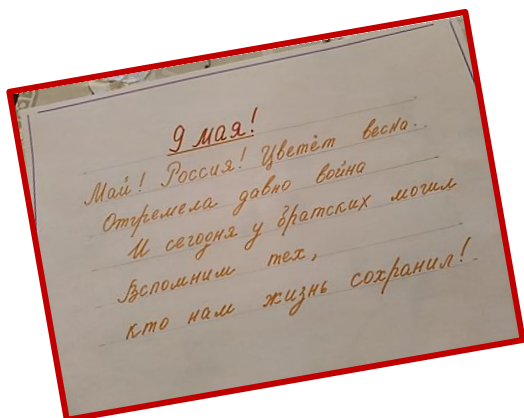 9 мая!
Май! Россия! Цветёт весна..
Отгремела давно война
И сегодня у братских могил
Вспомним тех,
кто нам жизнь сохранил!.